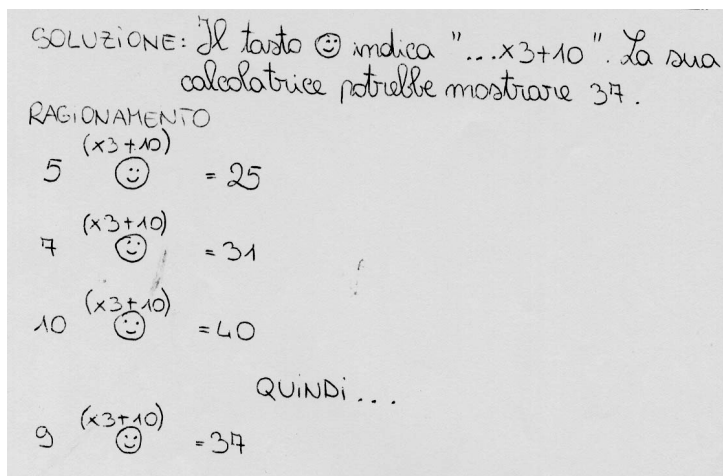 SOLUZIONE: Il tasto ☺ indica "...x3+10". La sua
calcolatrice potrebbe mostrare 37.
RAGIONAMENTO
(x3+10)
5 ☺ = 25
(x3+10)
7 ☺ = 31
(x3+10)
10 ☺ = 40
QUINDI...
(x3+10)
9 ☺ = 37